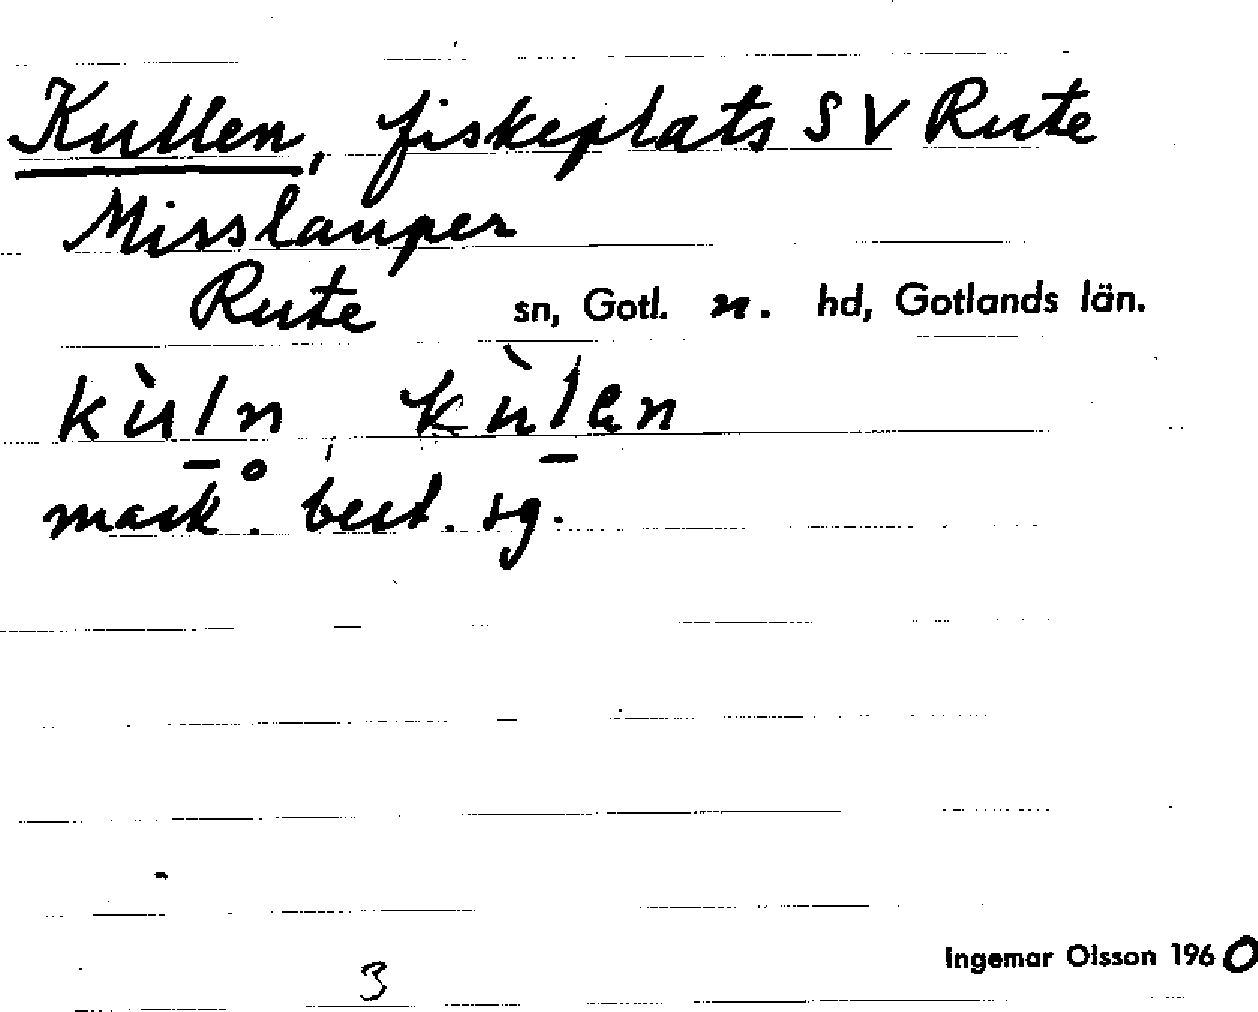 Kullen, fiskeplats SV Rute
Misslauper
Rute sn, Gotl. n. hd, Gotlands län.
kùl̲n̥, kùl̲ən
mask. best. sg.
Ingemar Olsson 1960
3